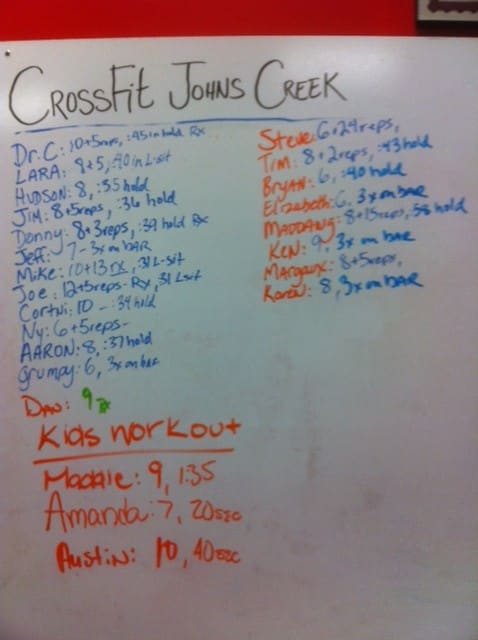 CrossFit Johns Creek
Dr. C: 10+5reps, :45in hold Rx
LARA: 8+5, :40 in L-sit
HUDSON: 8, :55 hold
JIM: 8+5reps, :36 hold
Donny: 8+3reps, :39 hold Rx
Jeff: 7 - 3x on BAR
Mike: 10+13 rx, :31 L-sit
Joe: 12+5reps- Rx, 31 Lsit
Cortni: 10 - :34 hold
Ny: 6+5reps-
AARON: 8, :37 hold
Grumpy: 6, 3x on bar
Dan: 9 Rx
Steve: 6+29reps,
Tim: 8+2reps, :43 hold
Bryan: 6, :40 hold
Elizabeth: 6, 3x on BAR
MADDAWG: 8+15reps, :58 hold
Ken: 9, 3x on BAR
Margaux: 8+5reps,
Karen: 8, 3x on BAR
Kids workout
Maddie: 9, 1:35
Amanda: 7, 20sec
Austin: 10, 40sec